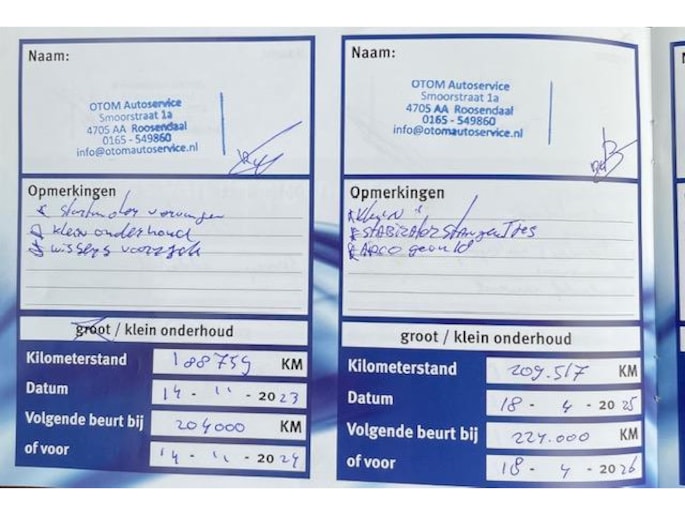 Naam:
OTOM Autoservice
Smoorstraat 1a
4705 AA Roosendaal
0165 - 549860
info@otomautoservice.nl
Opmerkingen
vervangen
klein onderhoud
wissers
groot / klein onderhoud
Kilometerstand 188759 KM
Datum 14 - 11 - 2023
Volgende beurt bij 204000 KM
of voor 14 - 11 - 2024
Naam:
OTOM Autoservice
Smoorstraat 1a
4705 AA Roosendaal
0165 - 549860
info@otomautoservice.nl
Opmerkingen
klein
AIRCO gevuld
groot / klein onderhoud
Kilometerstand 209.517 KM
Datum 18 - 4 - 2025
Volgende beurt bij 224.000 KM
of voor 18 - 4 - 2026